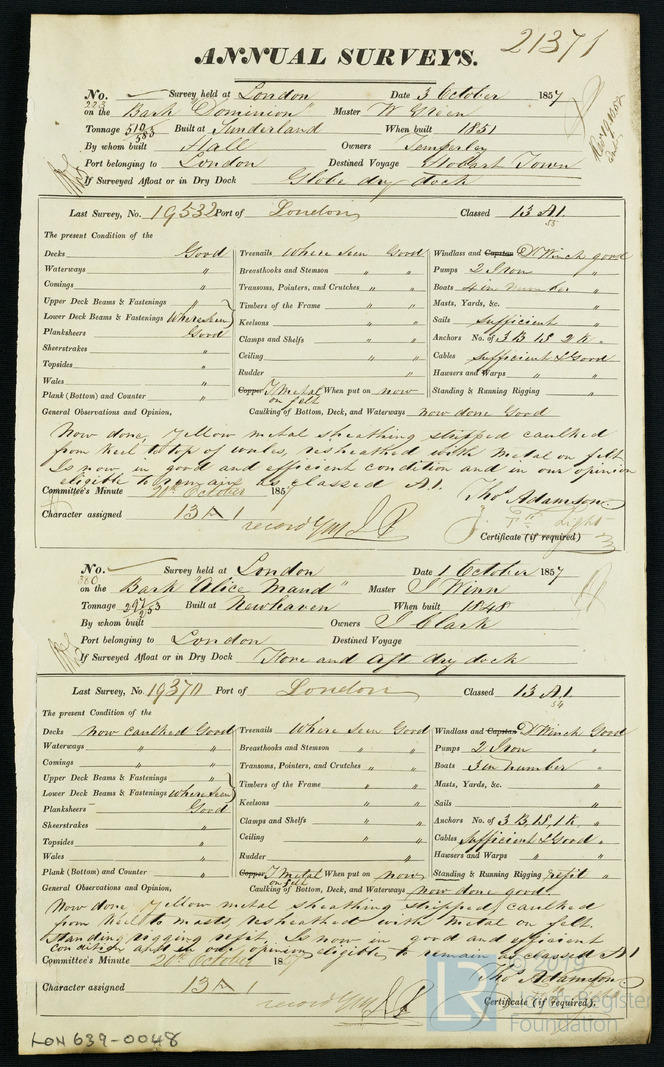 21371
ANNUAL SURVEYS.
No. Survey held at London Date 3 October 1857
223
on the Bark "Dominion" Master W Green
Tonnage 510/583 Built at Sunderland When built 1851
By whom built Hall Owners Temperley
Port belonging to London Destined Voyage Hobart Town
If Surveyed Afloat or in Dry Dock Globe dry dock
Last Survey, No. 19532 Port of London Classed 13 A1.
55
The present Condition of the
Decks Good Treenails Where seen Good Windlass and Capstan Dº Winch good
Waterways " Breasthooks and Stemson " " Pumps 2 Iron "
Comings " Transoms, Pointers, and Crutches " " Boats 4 in number "
Upper Deck Beams & Fastenings " Timbers of the Frame " " Masts, Yards, &c. "
Lower Deck Beams & Fastenings Where seen Keelsons " " Sails Sufficient "
Planksheers Good Clamps and Shelfs " " Anchors No. of 3 B, 1 S, 2 K. "
Sheerstrakes " Ceiling " " Cables Sufficient & Good
Topsides " Rudder " Hawsers and Warps " "
Wales " Copper Y Metal on felt When put on now Standing & Running Rigging "
Plank (Bottom) and Counter "
General Observations and Opinion, Caulking of Bottom, Deck, and Waterways now done Good
Now done, Yellow metal sheathing stripped caulked
from Keel to top of wales, resheathed with metal on felt
Is now in good and efficient condition and in our opinion
eligible to remain as classed A1.
Committee's Minute 20th October 1857 Thos Adamson
Character assigned 13 A 1
record YM
Certificate (if required)
No. Survey held at London Date 1 October 1857
380
on the Bark "Alice Maud" Master J Winn
Tonnage 292/253 Built at Newhaven When built 1848
By whom built Owners J Clark
Port belonging to London Destined Voyage
If Surveyed Afloat or in Dry Dock Fore and Aft dry dock
Last Survey, No. 19370 Port of London Classed 13 A1.
54
The present Condition of the
Decks now caulked Good Treenails Where seen Good Windlass and Capstan Dº Winch Good
Waterways " " Breasthooks and Stemson " " Pumps 2 Iron "
Comings " " Transoms, Pointers, and Crutches " " Boats 3 in number "
Upper Deck Beams & Fastenings " Timbers of the Frame " " Masts, Yards, &c. " "
Lower Deck Beams & Fastenings Where seen Keelsons " " Sails " "
Planksheers Good Clamps and Shelfs " " Anchors No. of 3 B, 1 S, 1 K. "
Sheerstrakes " Ceiling " " Cables Sufficient & Good "
Topsides " Rudder " " Hawsers and Warps " "
Wales " Copper Y Metal on felt When put on now Standing & Running Rigging refit "
Plank (Bottom) and Counter "
General Observations and Opinion, Caulking of Bottom, Deck, and Waterways now done good
Now done, Yellow metal sheathing stripped, caulked
from Keel to masts, resheathed with metal on felt.
Standing rigging refit, Is now in good and efficient
condition and in our opinion eligible to remain as classed A1
Committee's Minute 20th October 18 Thos Adamson
Character assigned 13 A 1
record YM
Certificate (if required).
LR © 2019
Lloyd's Register
Foundation
LON 639-0048